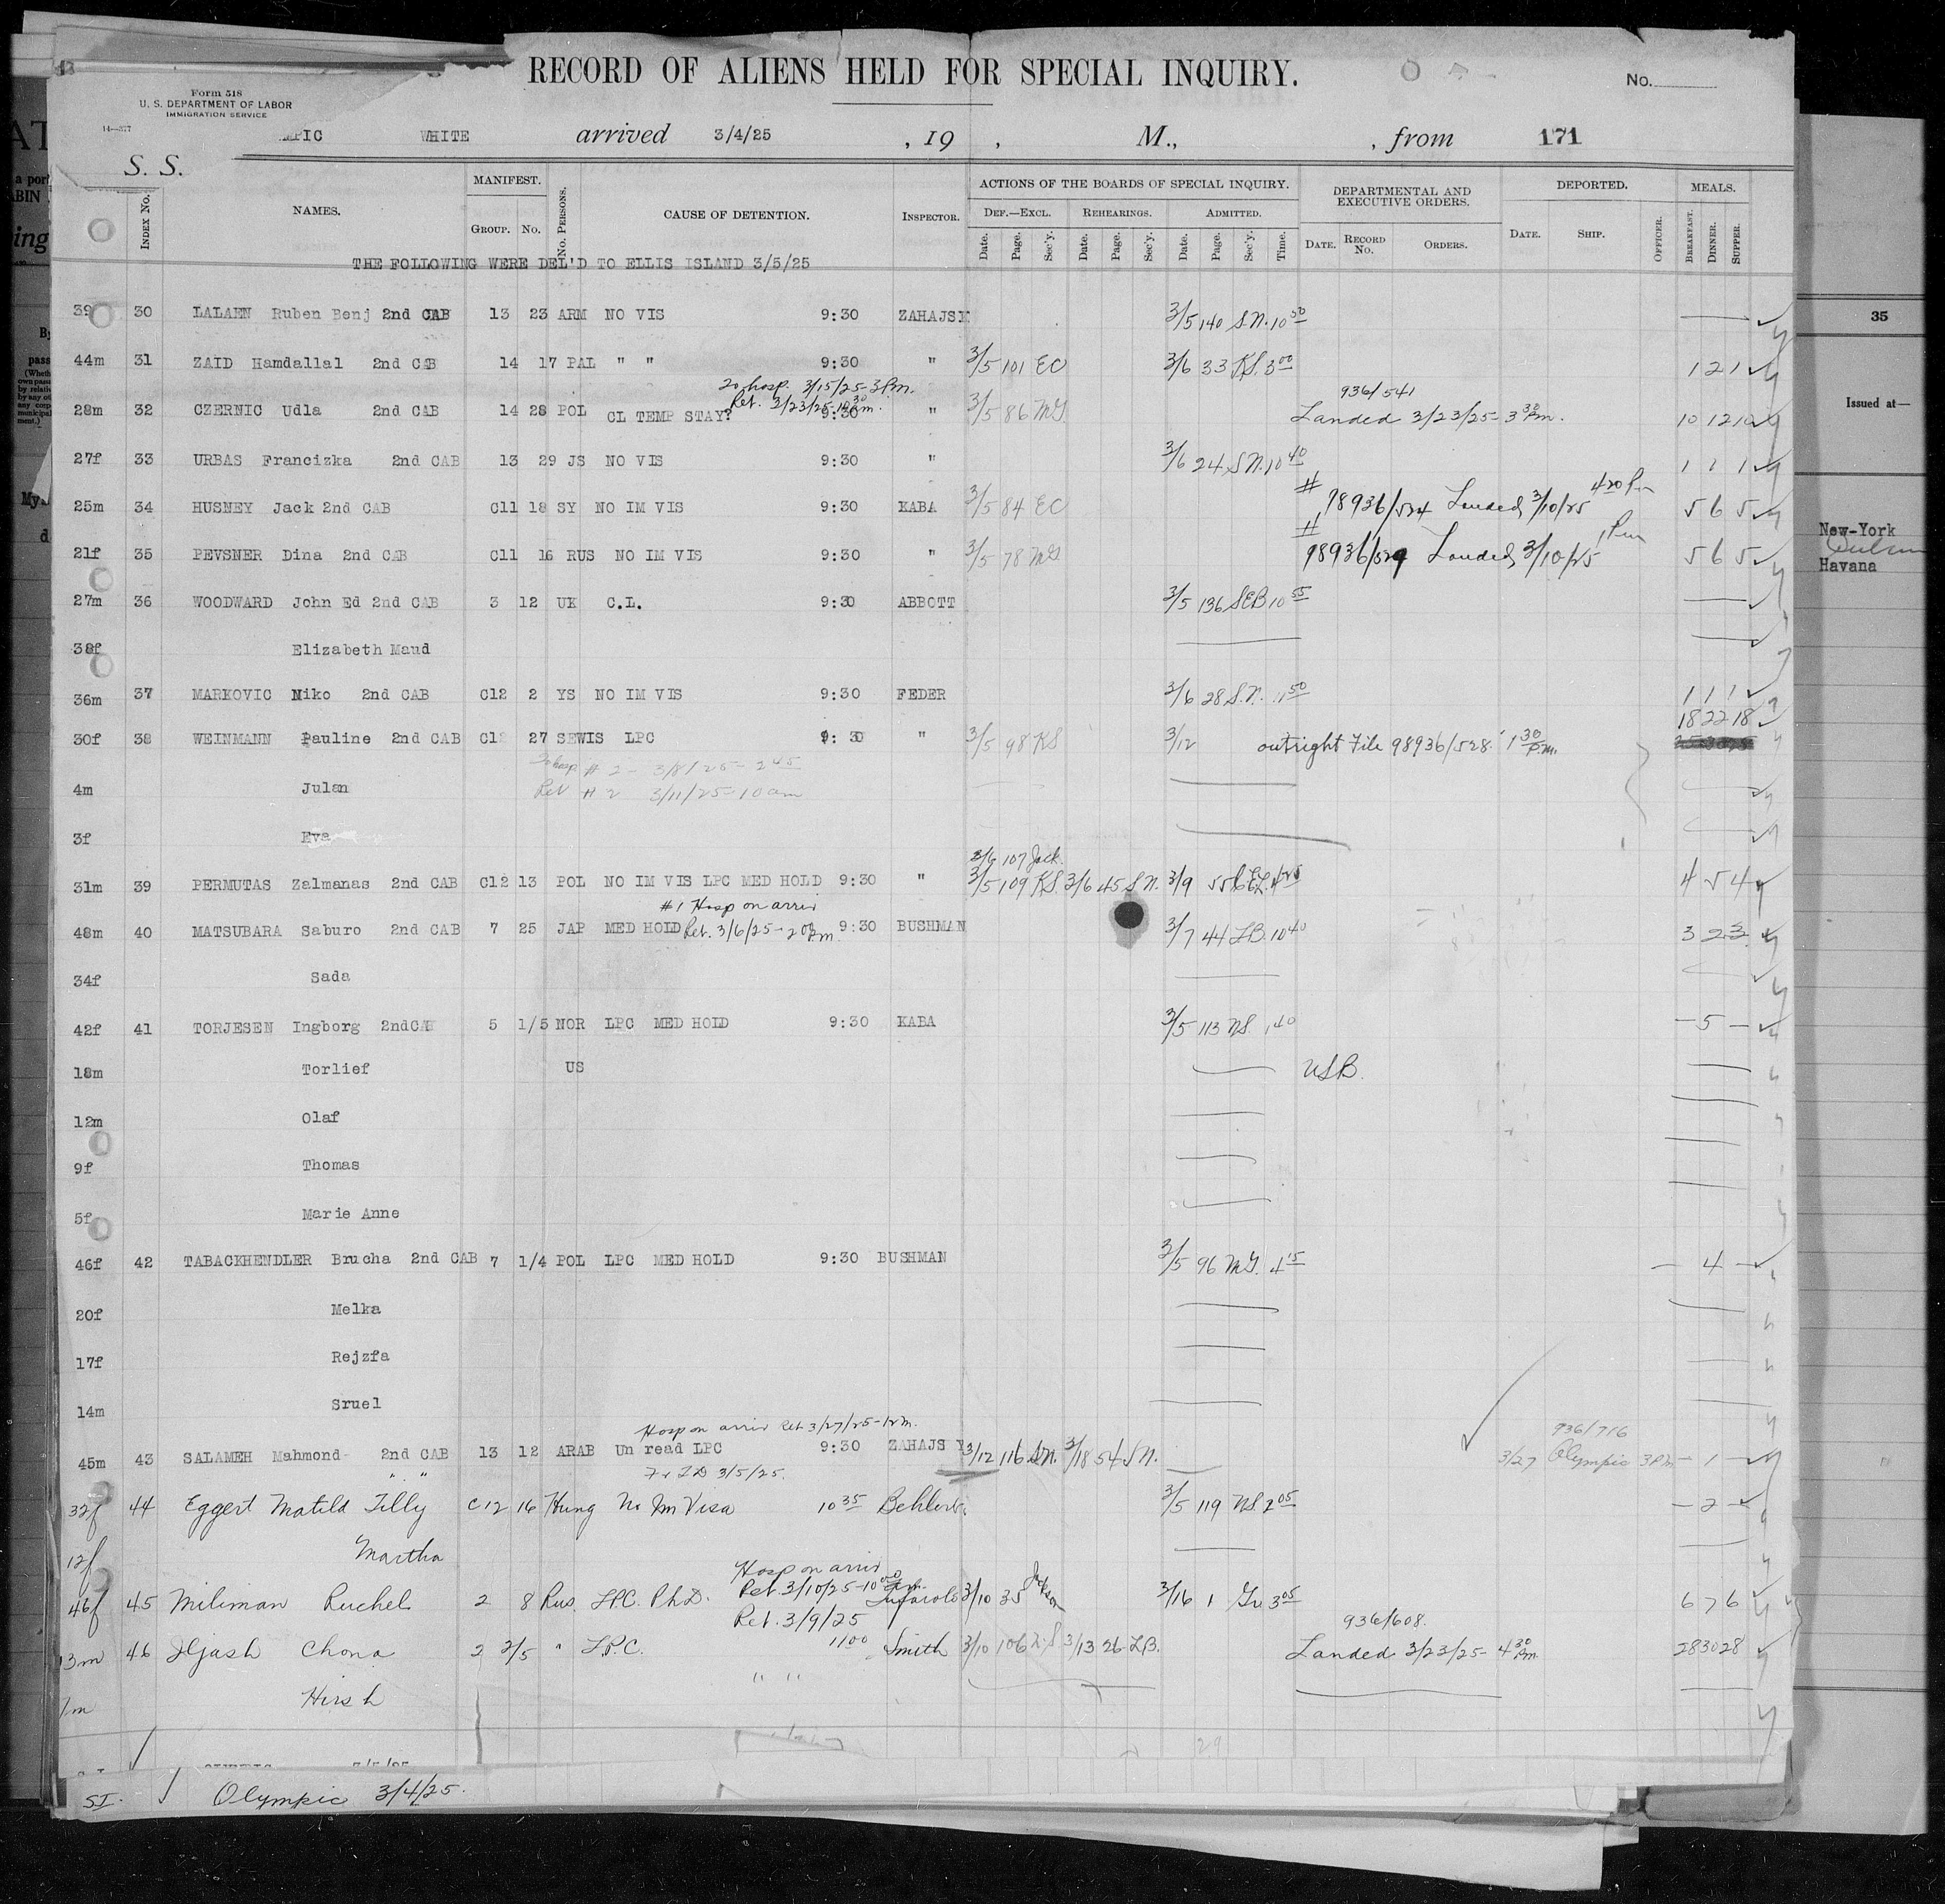 RECORD OF ALIENS HELD FOR SPECIAL INQUIRY.
No.
Form 518
U. S. DEPARTMENT OF LABOR
IMMIGRATION SERVICE
14—377
S. S. PIC WHITE arrived 3/4/25 , 19 , M., , from 171
INDEX No. NAMES. MANIFEST. GROUP. No. No. PERSONS. CAUSE OF DETENTION. INSPECTOR. ACTIONS OF THE BOARDS OF SPECIAL INQUIRY. DEPARTMENTAL AND EXECUTIVE ORDERS. DEPORTED. MEALS.
DEF.—EXCL. REHEARINGS. ADMITTED.
Date. Page. Sec'y. Date. Page. Sec'y. Date. Page. Sec'y. Time. DATE. RECORD No. ORDERS. DATE. SHIP. OFFICER. BREAKFAST. DINNER. SUPPER.
THE FOLLOWING WERE DEL'D TO ELLIS ISLAND 3/5/25
39 30 LALAEN Ruben Benj 2nd CAB 13 23 ARM NO VIS 9:30 ZAHAJSY 3/5 140 S.N. 10 50
44m 31 ZAID Hamdallal 2nd CAB 14 17 PAL " " 9:30 " 3/5 101 EC 3/6 33 KS. 3 00 1 2 1
To hosp. 3/15/25 - 3 P.m. 936/541
28m 32 CZERNIC Udla 2nd CAB 14 28 POL CL TEMP STAY? Ret. 3/23/25 9:30 " 3/5 86 MG. Landed 3/23/25 - 3 30 Pm. 10 12 10
27f 33 URBAS Francizka 2nd CAB 13 29 JS NO VIS 9:30 " 3/6 24 S.N. 10 40 1 1 1
25m 34 HUSNEY Jack 2nd CAB C11 18 SY NO IM VIS 9:30 KABA 3/5 84 EC # 98936/524 Landed 3/10/25 4 20 Pm 5 6 5
21f 35 PEVSNER Dina 2nd CAB C11 16 RUS NO IM VIS 9:30 " 3/5 78 MG # 98936/529 Landed 3/10/25 1 Pm 5 6 5
27m 36 WOODWARD John Ed 2nd CAB 3 12 UK C.L. 9:30 ABBOTT 3/5 136 SEB 10 55
38f Elizabeth Maud
36m 37 MARKOVIC Niko 2nd CAB C12 2 YS NO IM VIS 9:30 FEDER 3/6 28 S.N. 11 50 1 1 1
18 22 18
30f 38 WEINMANN Pauline 2nd CAB C12 27 SEWIS LPC 9:30 " 3/5 98 KS 3/12 outright File 98936/528 1 30 P.m.
To hosp # 2 - 3/8/25 - 2 45
4m Julan Ret # 2 3/11/25 - 10 am
3f Eva
3/6 107 Jack.
31m 39 PERMUTAS Zalmanas 2nd CAB C12 13 POL NO IM VIS LPC MED HOLD 9:30 " 3/5 109 KS. 3/6 45 S.N. 3/9 4 5 4
#1 Hosp on arriv
48m 40 MATSUBARA Saburo 2nd CAB 7 25 JAP MED HOLD Ret. 3/6/25 - 2 00 P.m. 9:30 BUSHMAN 3/7 44 LB. 10 40 3 2 3
34f Sada
42f 41 TORJESEN Ingborg 2nd CAB 5 1/5 NOR LPC MED HOLD 9:30 KABA 3/5 113 NS. 1 40 — 5 —
18m Torlief US USB.
12m Olaf
9f Thomas
5f Marie Anne
46f 42 TABACKHENDLER Brucha 2nd CAB 7 1/4 POL LPC MED HOLD 9:30 BUSHMAN 3/5 96 MG. 4 15 — 4 —
20f Melka
17f Rejzfa
14m Sruel
Hosp on arriv Ret 3/27/25 - 12 m. 936/716
45m 43 SALAMEH Mahmond 2nd CAB 13 12 ARAB Un read LPC 9:30 ZAHAJSY 3/12 116 S.N. 3/18 54 S.N. 3/27 Olympic 3 P.m. — 1 —
" " 3/5/25.
32f 44 Eggert Matild Tilly C12 16 Hung No Im Visa 10 35 3/5 119 NS. 2 05 — 2 —
12f Martha
Hosp on arriv
46f 45 Miliman Ruchel 2 8 Rus. LPC. Ph.D. Ret. 3/10/25 - 10 3/10 35 3/16 1 Gr. 3 05 6 7 6
Ret. 3/9/25 936/608.
13m 46 Iljash Chona 2 2/5 " LPC. 11 00 Smith 3/10 106 3/13 26 LB. Landed 3/23/25 - 4 30 Pm. 28 30 28
" "
Hirsh
29
SI. Olympic 3/4/25.
35
Issued at—
New-York
Havana